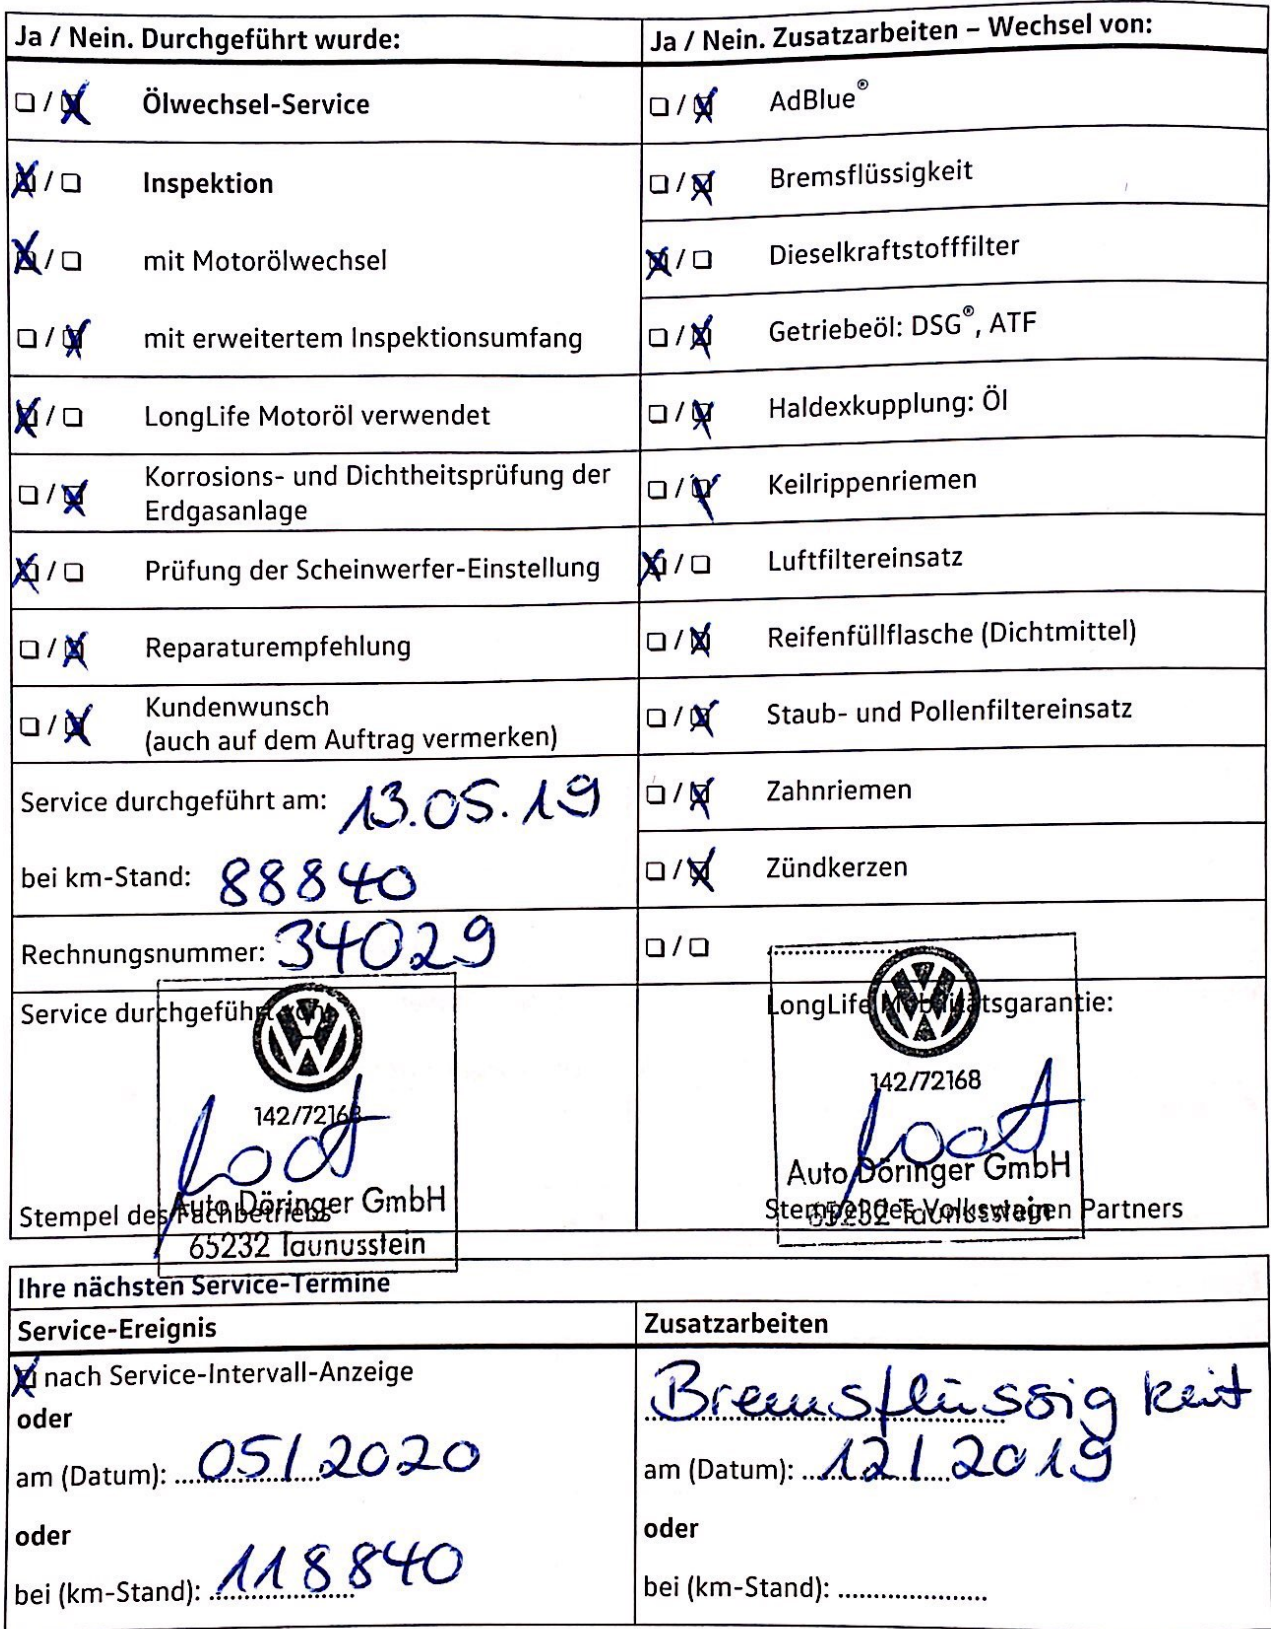 Ja / Nein. Durchgeführt wurde:
Ölwechsel-Service
Inspektion
mit Motorölwechsel
mit erweitertem Inspektionsumfang
LongLife Motoröl verwendet
Korrosions- und Dichtheitsprüfung der
Erdgasanlage
Prüfung der Scheinwerfer-Einstellung
Reparaturempfehlung
Kundenwunsch
(auch auf dem Auftrag vermerken)
Service durchgeführt am: 13.05.19
bei km-Stand: 88840
Rechnungsnummer: 34029
Service durchgeführt von:
142/72168
Auto Döringer GmbH
Stempel des Fachbetriebs
65232 Taunusstein
Ja / Nein. Zusatzarbeiten – Wechsel von:
AdBlue®
Bremsflüssigkeit
Dieselkraftstofffilter
Getriebeöl: DSG®, ATF
Haldexkupplung: Öl
Keilrippenriemen
Luftfiltereinsatz
Reifenfüllflasche (Dichtmittel)
Staub- und Pollenfiltereinsatz
Zahnriemen
Zündkerzen
LongLife Mobilitätsgarantie:
142/72168
Auto Döringer GmbH
65232 Taunusstein
Stempel des Volkswagen Partners
Ihre nächsten Service-Termine
Service-Ereignis
nach Service-Intervall-Anzeige
oder
am (Datum): 05/2020
oder
bei (km-Stand): 118840
Zusatzarbeiten
Bremsflüssigkeit
am (Datum): 12/2019
oder
bei (km-Stand):